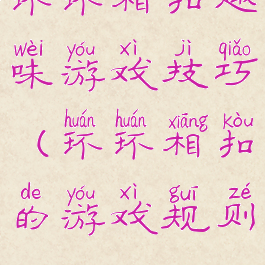 环环相扣趣
wèi yóu xì jì qiǎo
味游戏技巧
huán huán xiāng kòu
（环环相扣
de yóu xì guī zé
的游戏规则